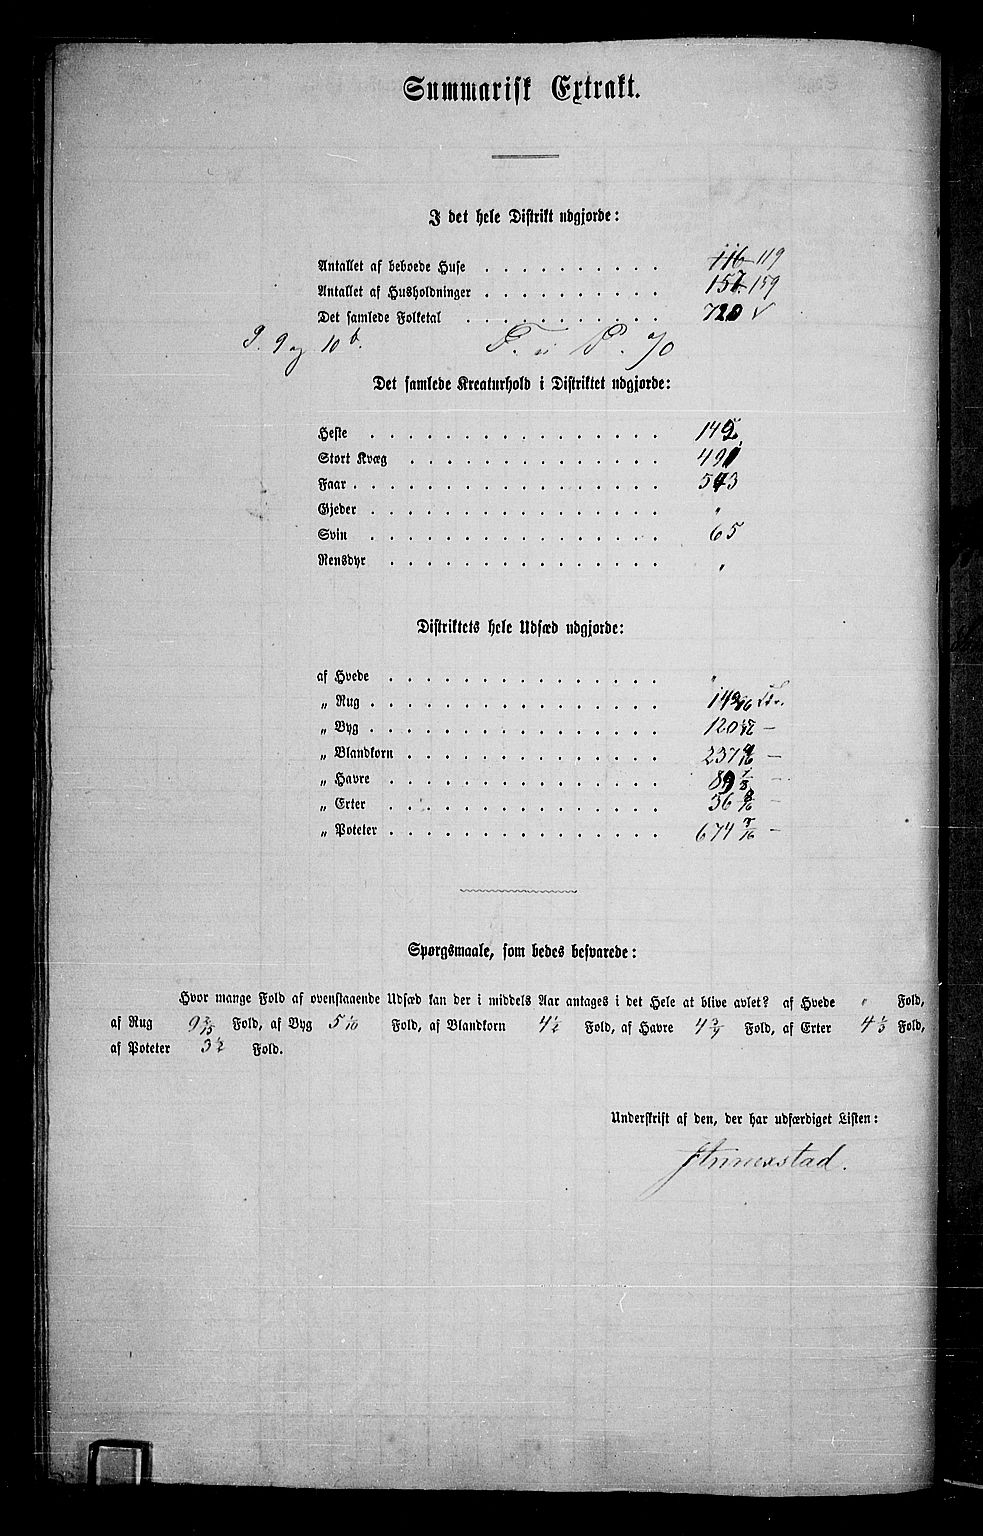 Summarisk Extrakt.
I det hele Distrikt udgjorde:
Antallet af beboede Huse . . . . . . . . . . 116 119
Antallet af Husholdninger . . . . . . . . . . 157 159
Det samlede Folketal . . . . . . . . . . 720 ✓
P. 9 og 10 b. F. P. 70
Det samlede Kreaturhold i Distriktet udgjorde:
Heste . . . . . . . . . . 145
Stort Kvæg . . . . . . . . . . 491
Faar . . . . . . . . . . 543
Gjeder . . . . . . . . . . "
Svin . . . . . . . . . . 65
Rensdyr . . . . . . . . . . "
Distriktets hele Udsæd udgjorde:
af Hvede . . . . . . . . . . "
„ Rug . . . . . . . . . . Tdr.
„ Byg . . . . . . . . . . 120 —
„ Blandkorn . . . . . . . . . . 237 —
„ Havre . . . . . . . . . . —
„ Erter . . . . . . . . . . 36 —
„ Poteter . . . . . . . . . . 674 7/16 —
Spørgsmaale, som bedes besvarede:
Hvor mange Fold af ovenstaaende Udsæd kan der i middels Aar antages i det Hele at blive avlet? af Hvede " Fold,
af Rug 9 2/15 Fold, af Byg 5 1/10 Fold, af Blandkorn 4 1/2 Fold, af Havre 4 Fold, af Erter 4 1/3 Fold,
af Poteter 3 1/2 Fold.
Underskrift af den, der har udfærdiget Listen: